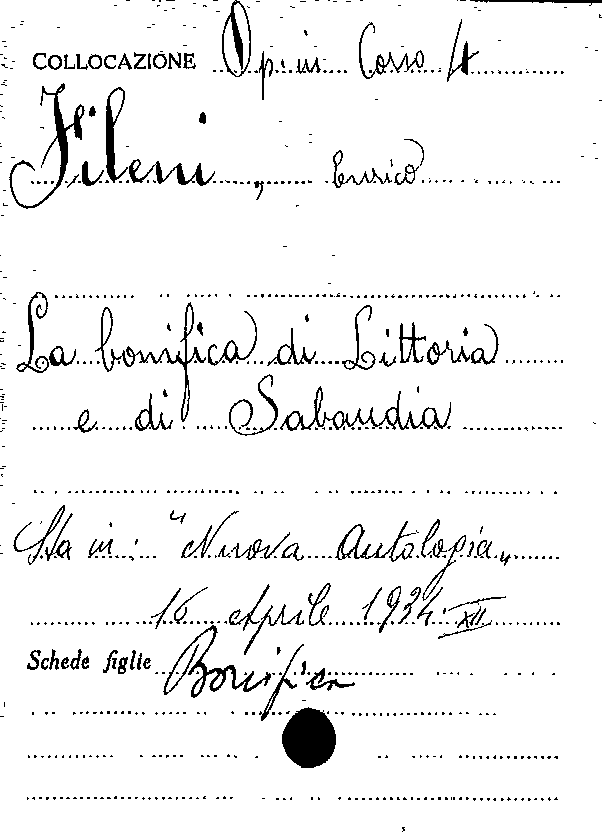 COLLOCAZIONE Op. in Corso 4
Fileni, Enrico
La bonifica di Littoria
e di Sabaudia
Sta in: "Nuova Antologia„
16 Aprile 1934 XII
Schede figlie Bonifica